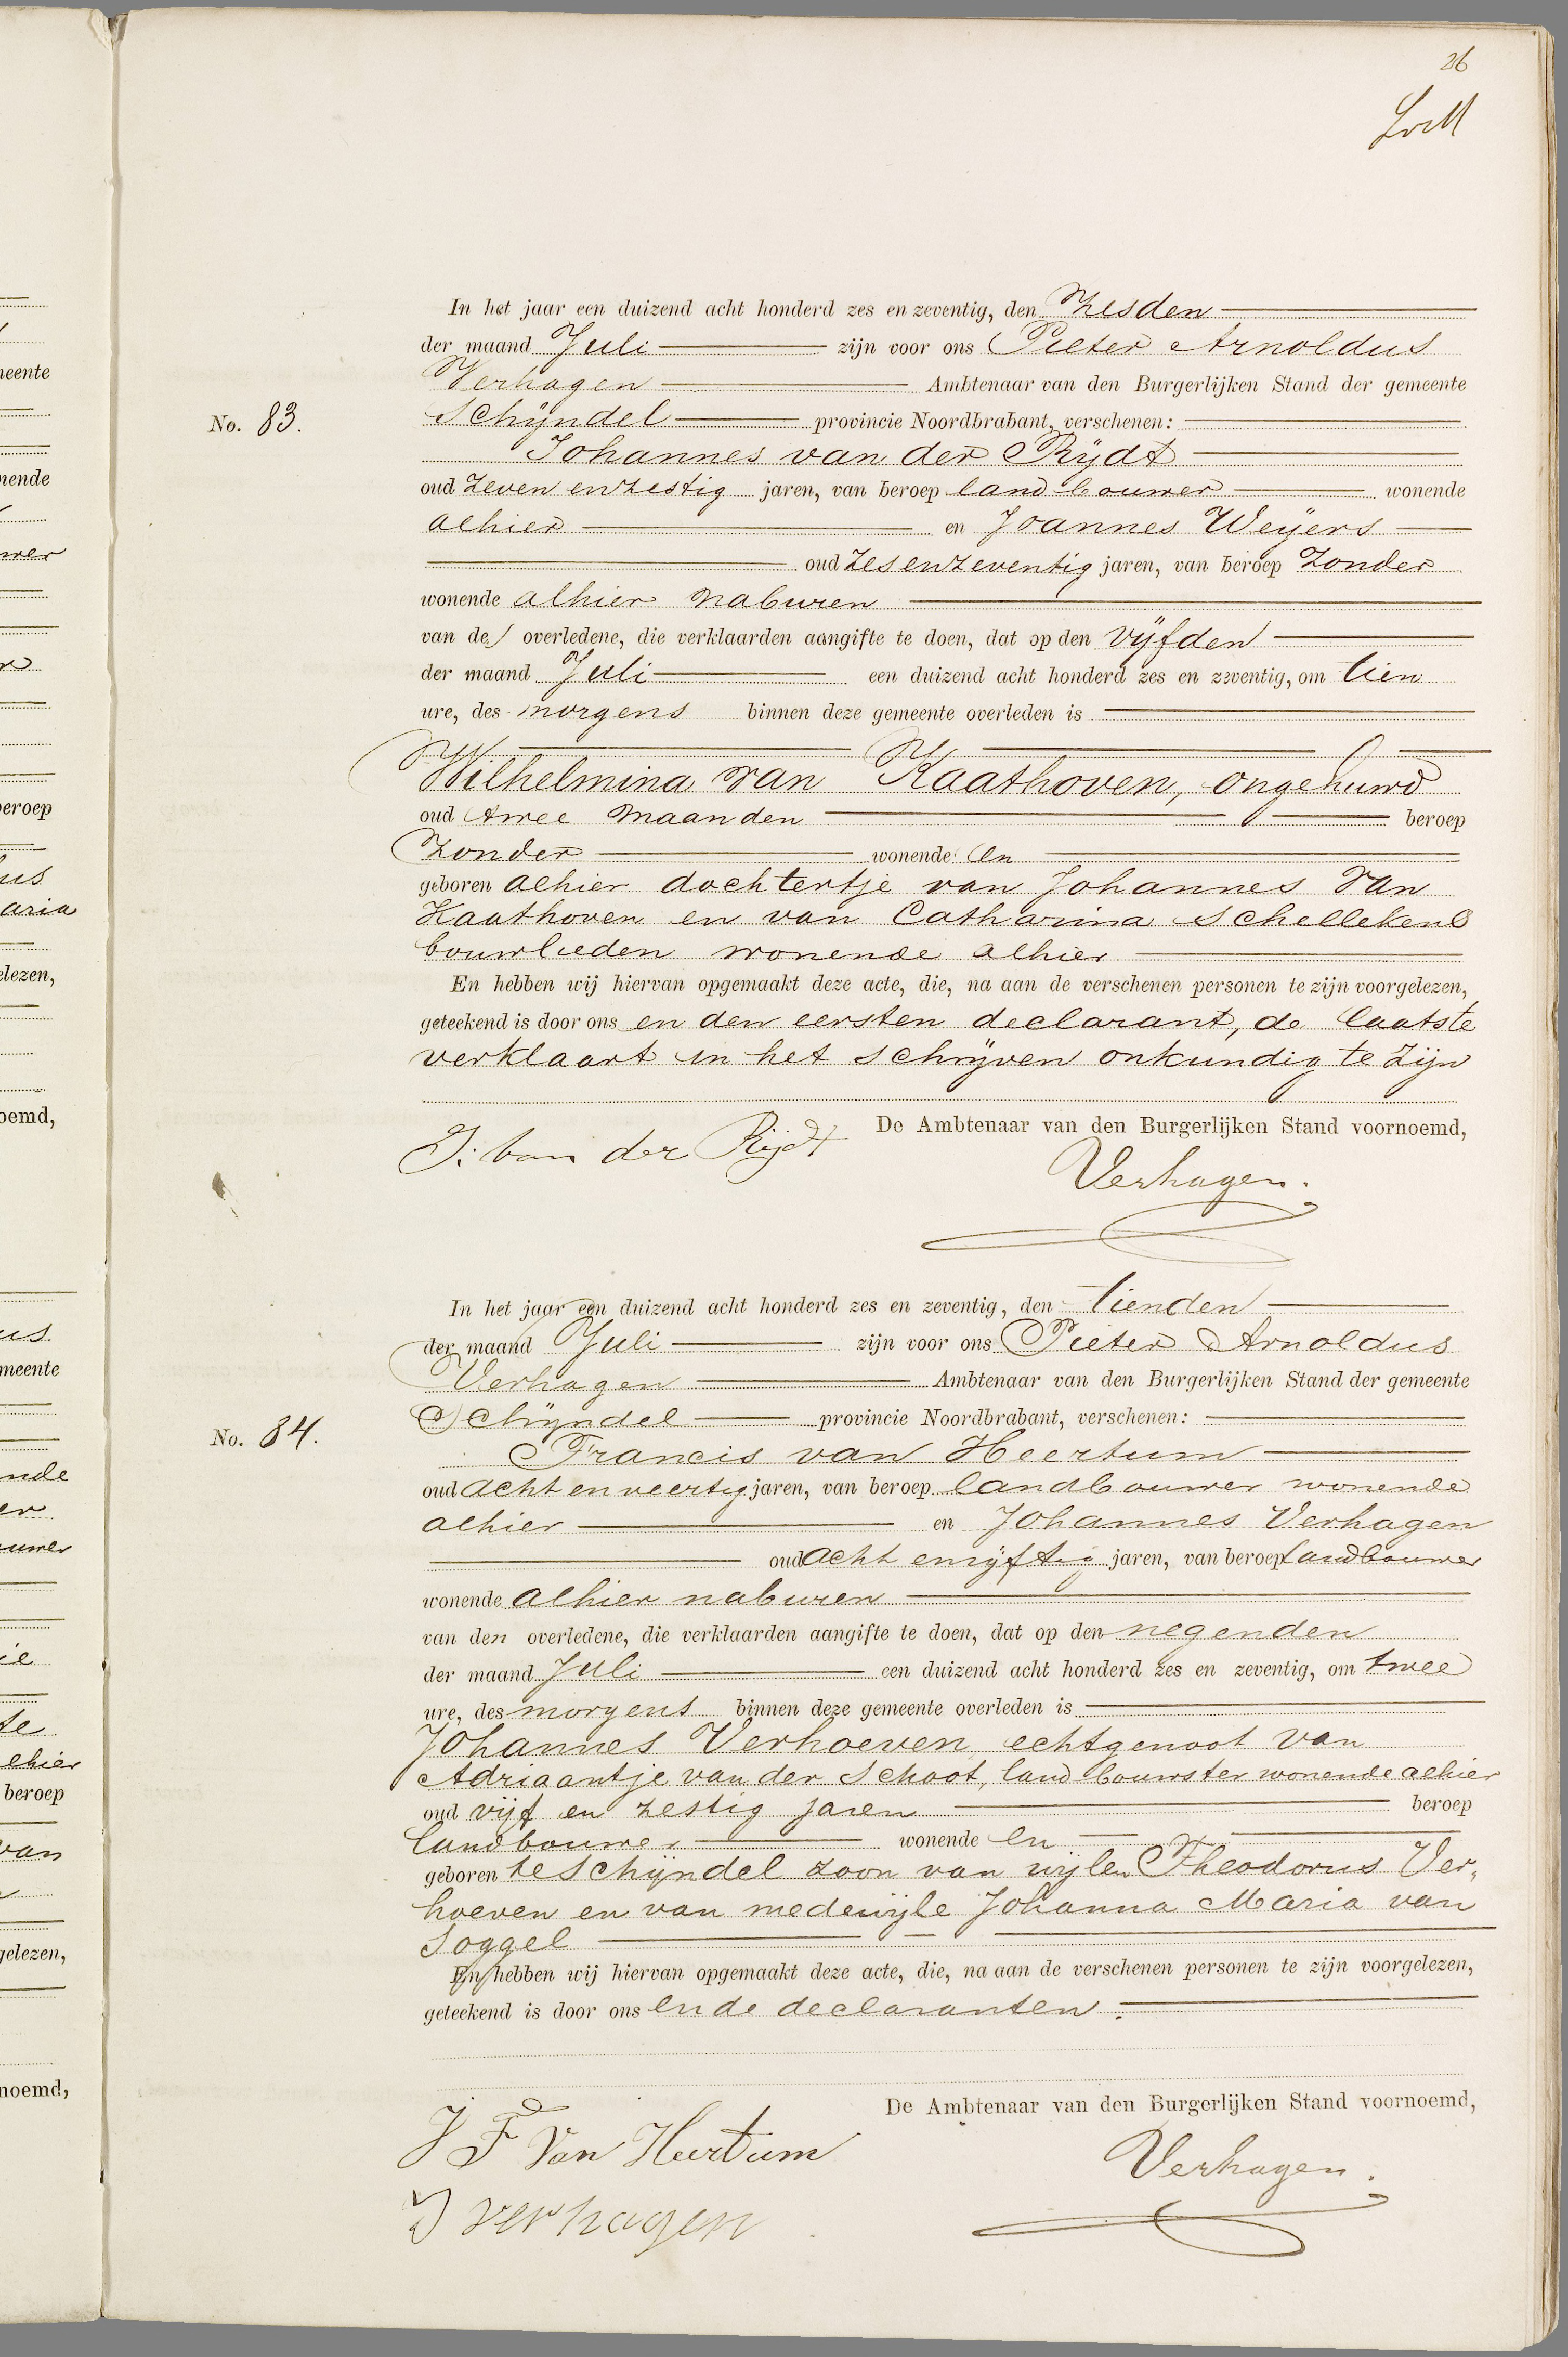 26
In het jaar een duizend acht honderd zes en zeventig, den zesden
der maand Juli zijn voor ons Pieter Arnoldus
Verhagen Ambtenaar van den Burgerlijken Stand der gemeente
No. 83. Schijndel provincie Noordbrabant, verschenen:
Johannes van der Rijdt
oud zeven en zestig jaren, van beroep landbouwer wonende
alhier en Joannes Weijers
oud zes en zeventig jaren, van beroep zonder
wonende alhier naburen
van de overledene, die verklaarden aangifte te doen, dat op den vijfden
der maand Juli een duizend acht honderd zes en zeventig, om tien
ure, des morgens binnen deze gemeente overleden is
Wilhelmina van Kaathoven, ongehuwd
oud twee maanden beroep
zonder wonende en
geboren alhier dochtertje van Johannes van
Kaathoven en van Catharina Schellekens
bouwlieden wonende alhier
En hebben wij hiervan opgemaakt deze acte, die, na aan de verschenen personen te zijn voorgelezen,
geteekend is door ons en den eersten declarant, de laatste
verklaart in het schrijven onkundig te zijn
De Ambtenaar van den Burgerlijken Stand voornoemd,
J: van der Rijdt
Verhagen.
In het jaar een duizend acht honderd zes en zeventig, den tienden
der maand Juli zijn voor ons Pieter Arnoldus
Verhagen Ambtenaar van den Burgerlijken Stand der gemeente
No. 84. Schijndel provincie Noordbrabant, verschenen:
Francis van Heertum
oud acht en veertig jaren, van beroep landbouwer wonende
alhier en Johannes Verhagen
oud acht en vijftig jaren, van beroep landbouwer
wonende alhier naburen
van den overledene, die verklaarden aangifte te doen, dat op den negenden
der maand Juli een duizend acht honderd zes en zeventig, om twee
ure, des morgens binnen deze gemeente overleden is
Johannes Verhoeven echtgenoot van
Adriaantje van der Schoot, landbouwster wonende alhier
oud vijf en zestig jaren beroep
landbouwer wonende en
geboren te Schijndel zoon van wijlen Theodorus Ver,
hoeven en van medewijle Johanna Maria van
Soggel
En hebben wij hiervan opgemaakt deze acte, die, na aan de verschenen personen te zijn voorgelezen,
geteekend is door ons en de declaranten.
De Ambtenaar van den Burgerlijken Stand voornoemd,
J F Van Heertum
Verhagen.
J verhagen